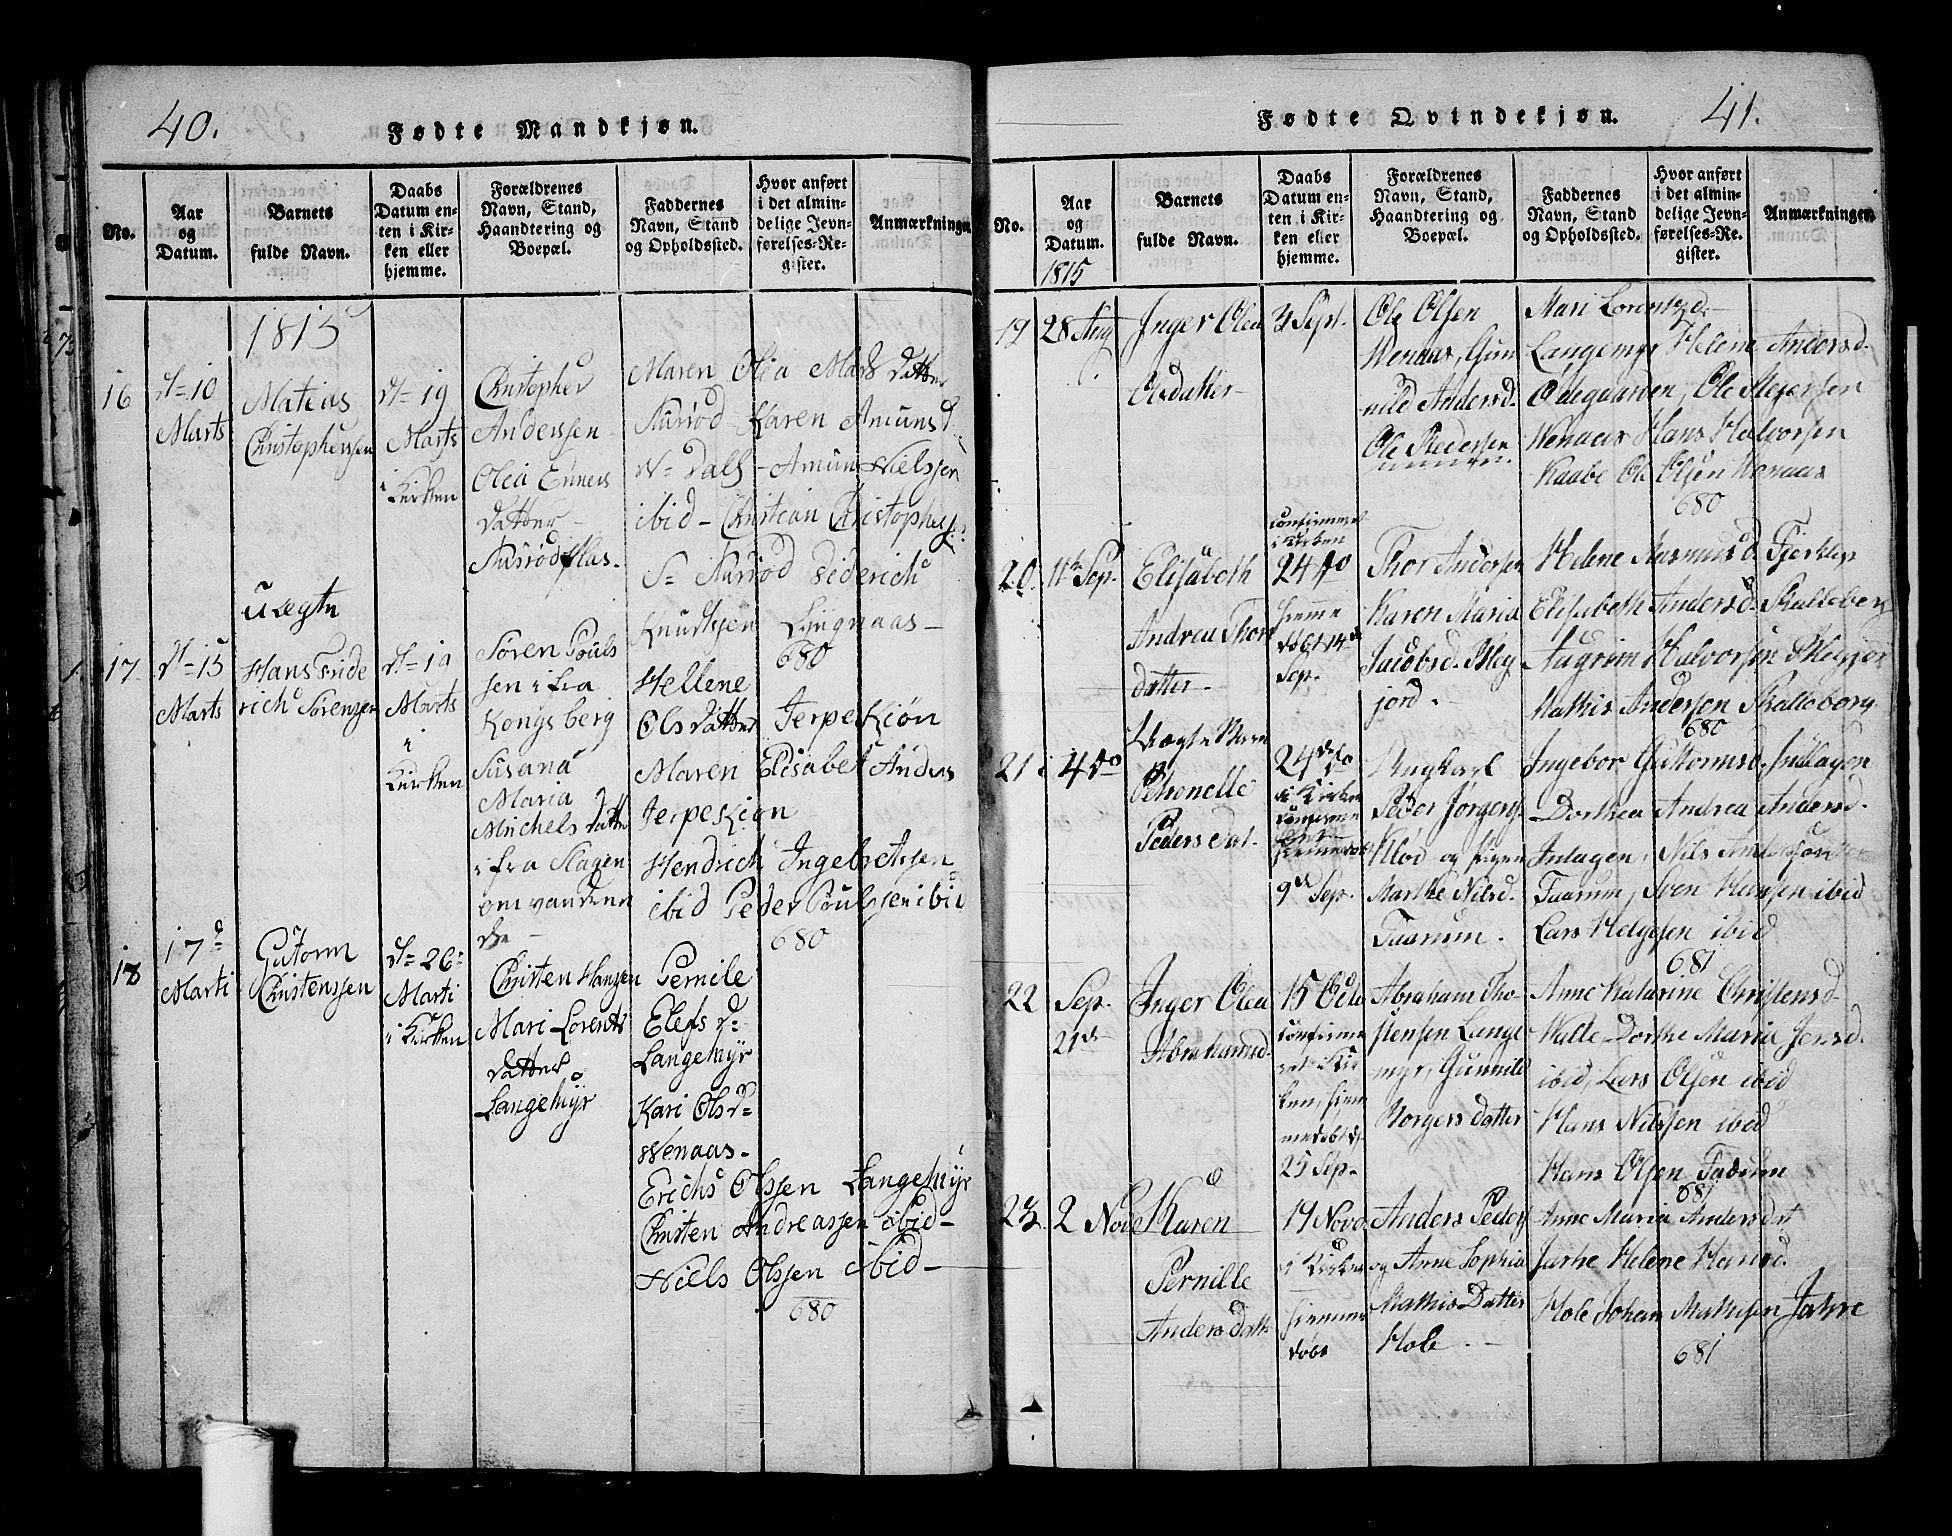 40.
Fødte Mandkjøn.
No.
Aar
og
Datum.
Barnets
fulde Navn.
Daabs
Datum en-
ten i Kir-
ken eller
hjemme.
Forældrenes
Navn, Stand,
Haandtering og
Boepæl.
Faddernes
Navn, Stand
og Opholdssted.
Hvor anført
i det almin-
delige Jevn-
førelses-Re-
gister.
Anmærkninger
1815
16
d= 10
Marts
Matius
Christophersen
d= 19
Marts
i
Kirken
Christopher
Anderssen
Olea Enners
datter
Maren Olea Mads datter
Karen Amunsd
Dahls - Amun Nielssen
ibid - Christian Christophers:
Diderich
Knudssen Lyngnaas -
680
uægte
17
d= 15
Marts
Hans Fride
rich Sørensen
d= 19
Marts
i
Kirken
Søren Pouls
sen i fra
Kongsberg
Susana
Maria
Michels datter
i fra Slagen
om vandren
de -
Hellene
Olsdatter Jerpekiøn
Maren Elisabet Anders
Jerpekiøn
Hendrich Ingebretssen
ibid Peder Poulssen ibid
680
18
17d
Marti
Gutorm
Christenssen
d= 26=
Marti
i Kirken
Christen Hansen
Mari Lorents
datter
Langemyr
Pernile
Elefs d=
Langemyr
Kari Olsd=
Wenaas -
Erichs Olssen Langemyr
Christen Andreassen ibid -
Niels Olssen ibid -
680
41.
Fødte Qvindekjøn.
No.
Aar
og
Datum.
1815
Barnets
fulde Navn.
Daabs
Datum en-
ten i Kir-
ken eller
hjemme.
Forældrenes
Navn, Stand,
Haandtering og
Boepæl.
Faddernes
Navn, Stand
og Opholdssted.
Hvor anført
i det almin-
delige Jevn-
førelses-Re-
gister.
Anmærkninger
19
28 Aug
Inger Olea
Olsdatter
3 Sept.
Ole Olsen
Wenaas, Gun
nild Andersd.
Ole Pedersen
Mari Lorentzd.
Langemyr Helene Andersd.
Ødegaarden, Ole
Wenaas Hans Halvorsen
Kaabe Ole Olsen Wenaas
680
20
11te Sep.
Elisabeth
Andrea Thors
datter
confirmeret
i Kirken
24 do
hiemme
døbt 14de
Sep.
Thor Andersen
Karen Maria
Jacobsd.
jord.
Helene Rasmusd.
Elisabeth Andersd. Skalleberg
Halvorsen
Mathis Andersen Skalleberg
680
21
4 do
Uægte Barn
Petronelle
Pedersdat.
24de do
i Kirken
9de Sep.
Ungkarl
Peder Jørgens
Kløv og Pigen
Marthe Nilsd.
Faarum.
Ingebor Guttormsd.
Dorthea Andrea Andersd.
Nils
Faarum, Sven Hansen ibid
Lars Helgesen ibid
681
22
Sep.
21de
Inger Olea
Abrahamsd.
15 Octo
confirme
ret i Kir
ken, hiem
medøbt d.
25 Sep.
Abraham Tho-
stensen Lange
myr, Gunnild
Borgers datter
Anne Katarine Christensd.
Walle Dorthe Maria Jensd.
ibid, Lars Olsen ibid
Hans Nilssen ibid
Hans Olsen Fadum
681
23.
2 Nov
Karen
Pernille
Anders Datt
19 Novo
i Kirken
hiemme
døbt
Anders Peders
og Anne Sophia
Mathis Datter
Hole.
Anne Maria Andersdat
Jarhe Helene Hansd.
Hole Johan Mathisen Jahre
681